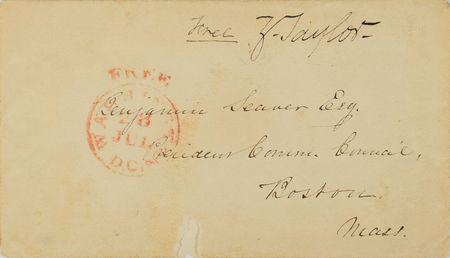 Free Z. Taylor
FREE
WASHINGTON D.C.
28
JUL
Benjamin Seaver Esq.
President Comm. Council,
Boston
Mass.